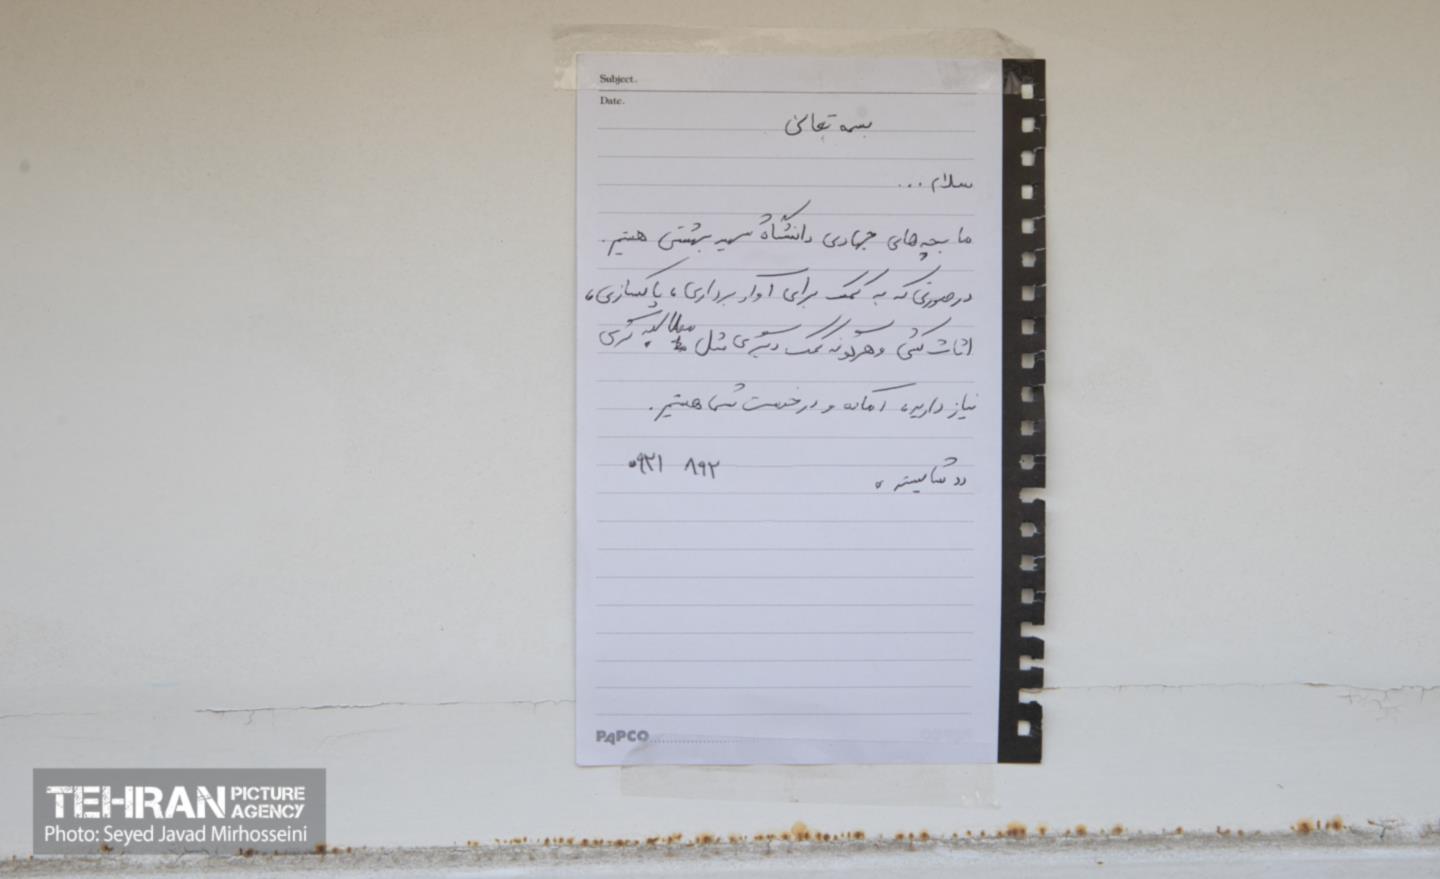 Subject.
Date.
بسمه تعالی
سلام ...
ما بچه‌های جهادی دانشگاه شهید بهشتی هستیم.
در صورتی که به کمک برای آوار برداری، پاکسازی،
اثاث کشی و هرگونه کمک دیگری مثل مطالبه گری
نیاز دارید، آماده و در خدمت شما هستیم.
شایسته ،
۰۹۲۱ ۸۹۲
PAPCO
TEHRAN PICTURE AGENCY
Photo: Seyed Javad Mirhosseini